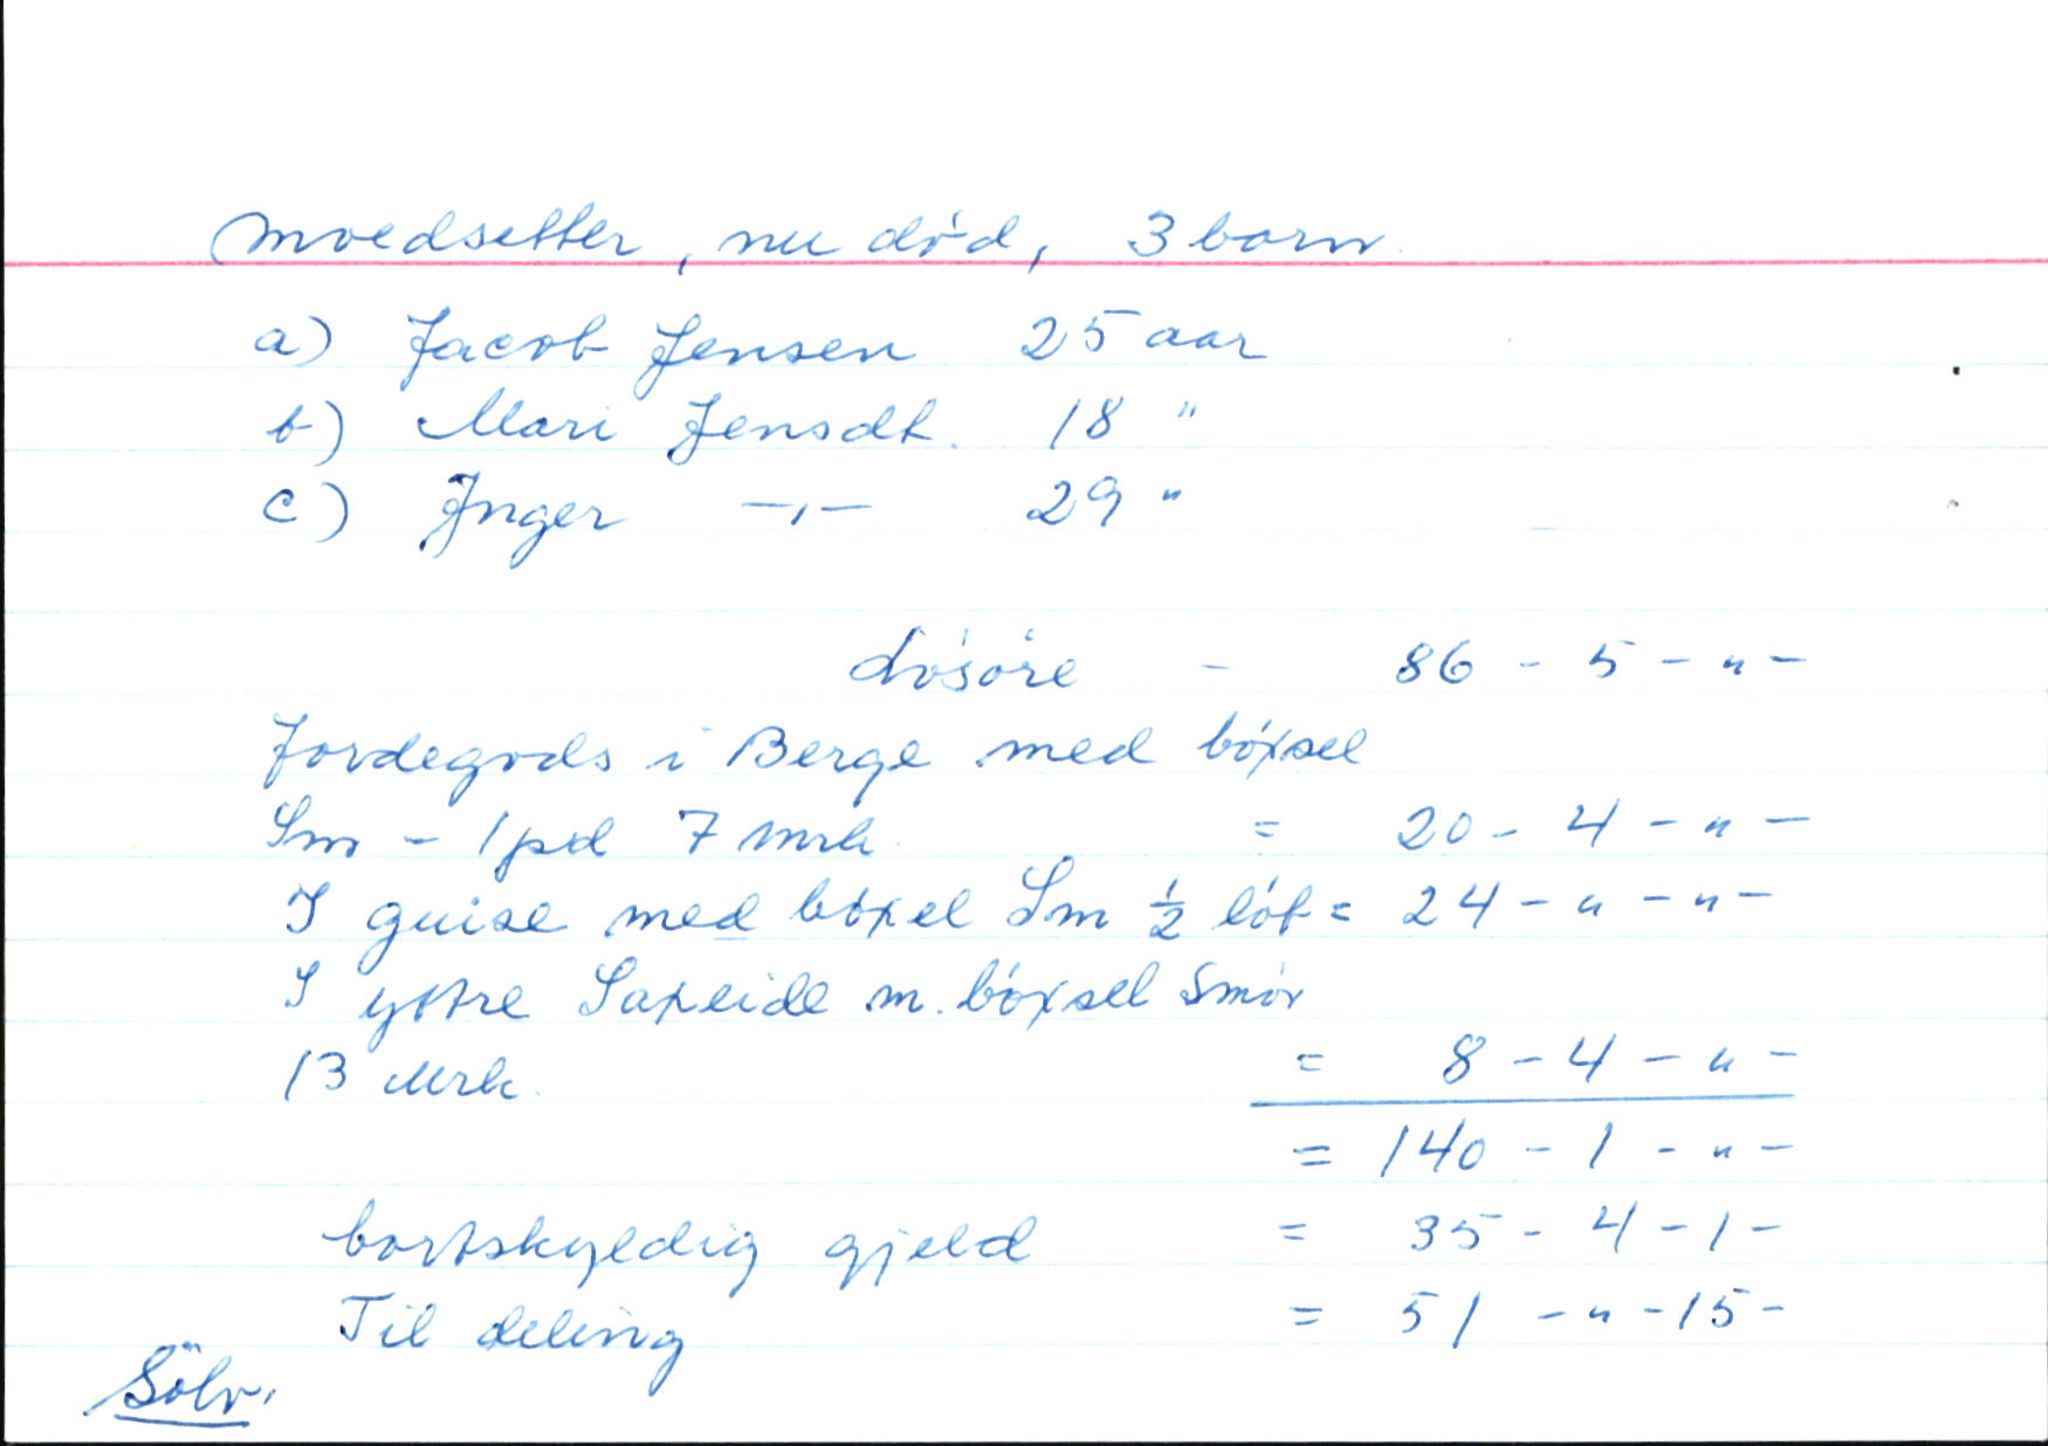 Mvedsetter, nu død, 3 born.
a) Jacob Jensen 25 aar
b) Mari Jensdt. 18 "
c) Inger —,,— 29 "
Løsøre - 86 - 5 - " -
Jordegods i Berge med bøxsel
Sm - 1 pd 7 mrk. = 20 - 4 - " -
I guise med bøxel Sm ½ løb = 24 - " - " -
I yttre Saxeide m. bøxsel Smør
13 Mrk. = 8 - 4 - " -
= 140 - 1 - " -
bortskyldig gjeld = 35 - 4 - 1 -
Til deling = 51 - " - 15 -
Sölv.